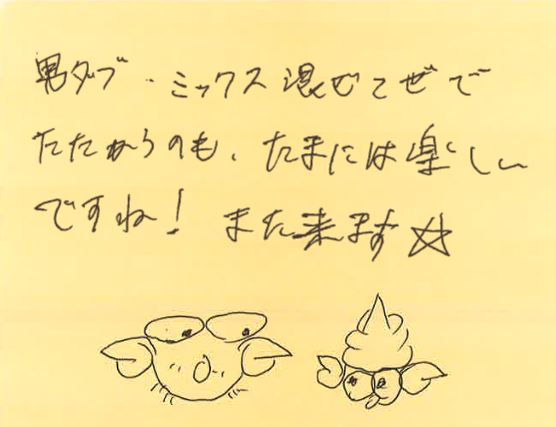 男ダブ・ミックス混ぜてぜで
たたかうのも、たまには楽しい
ですね！また来ます☆